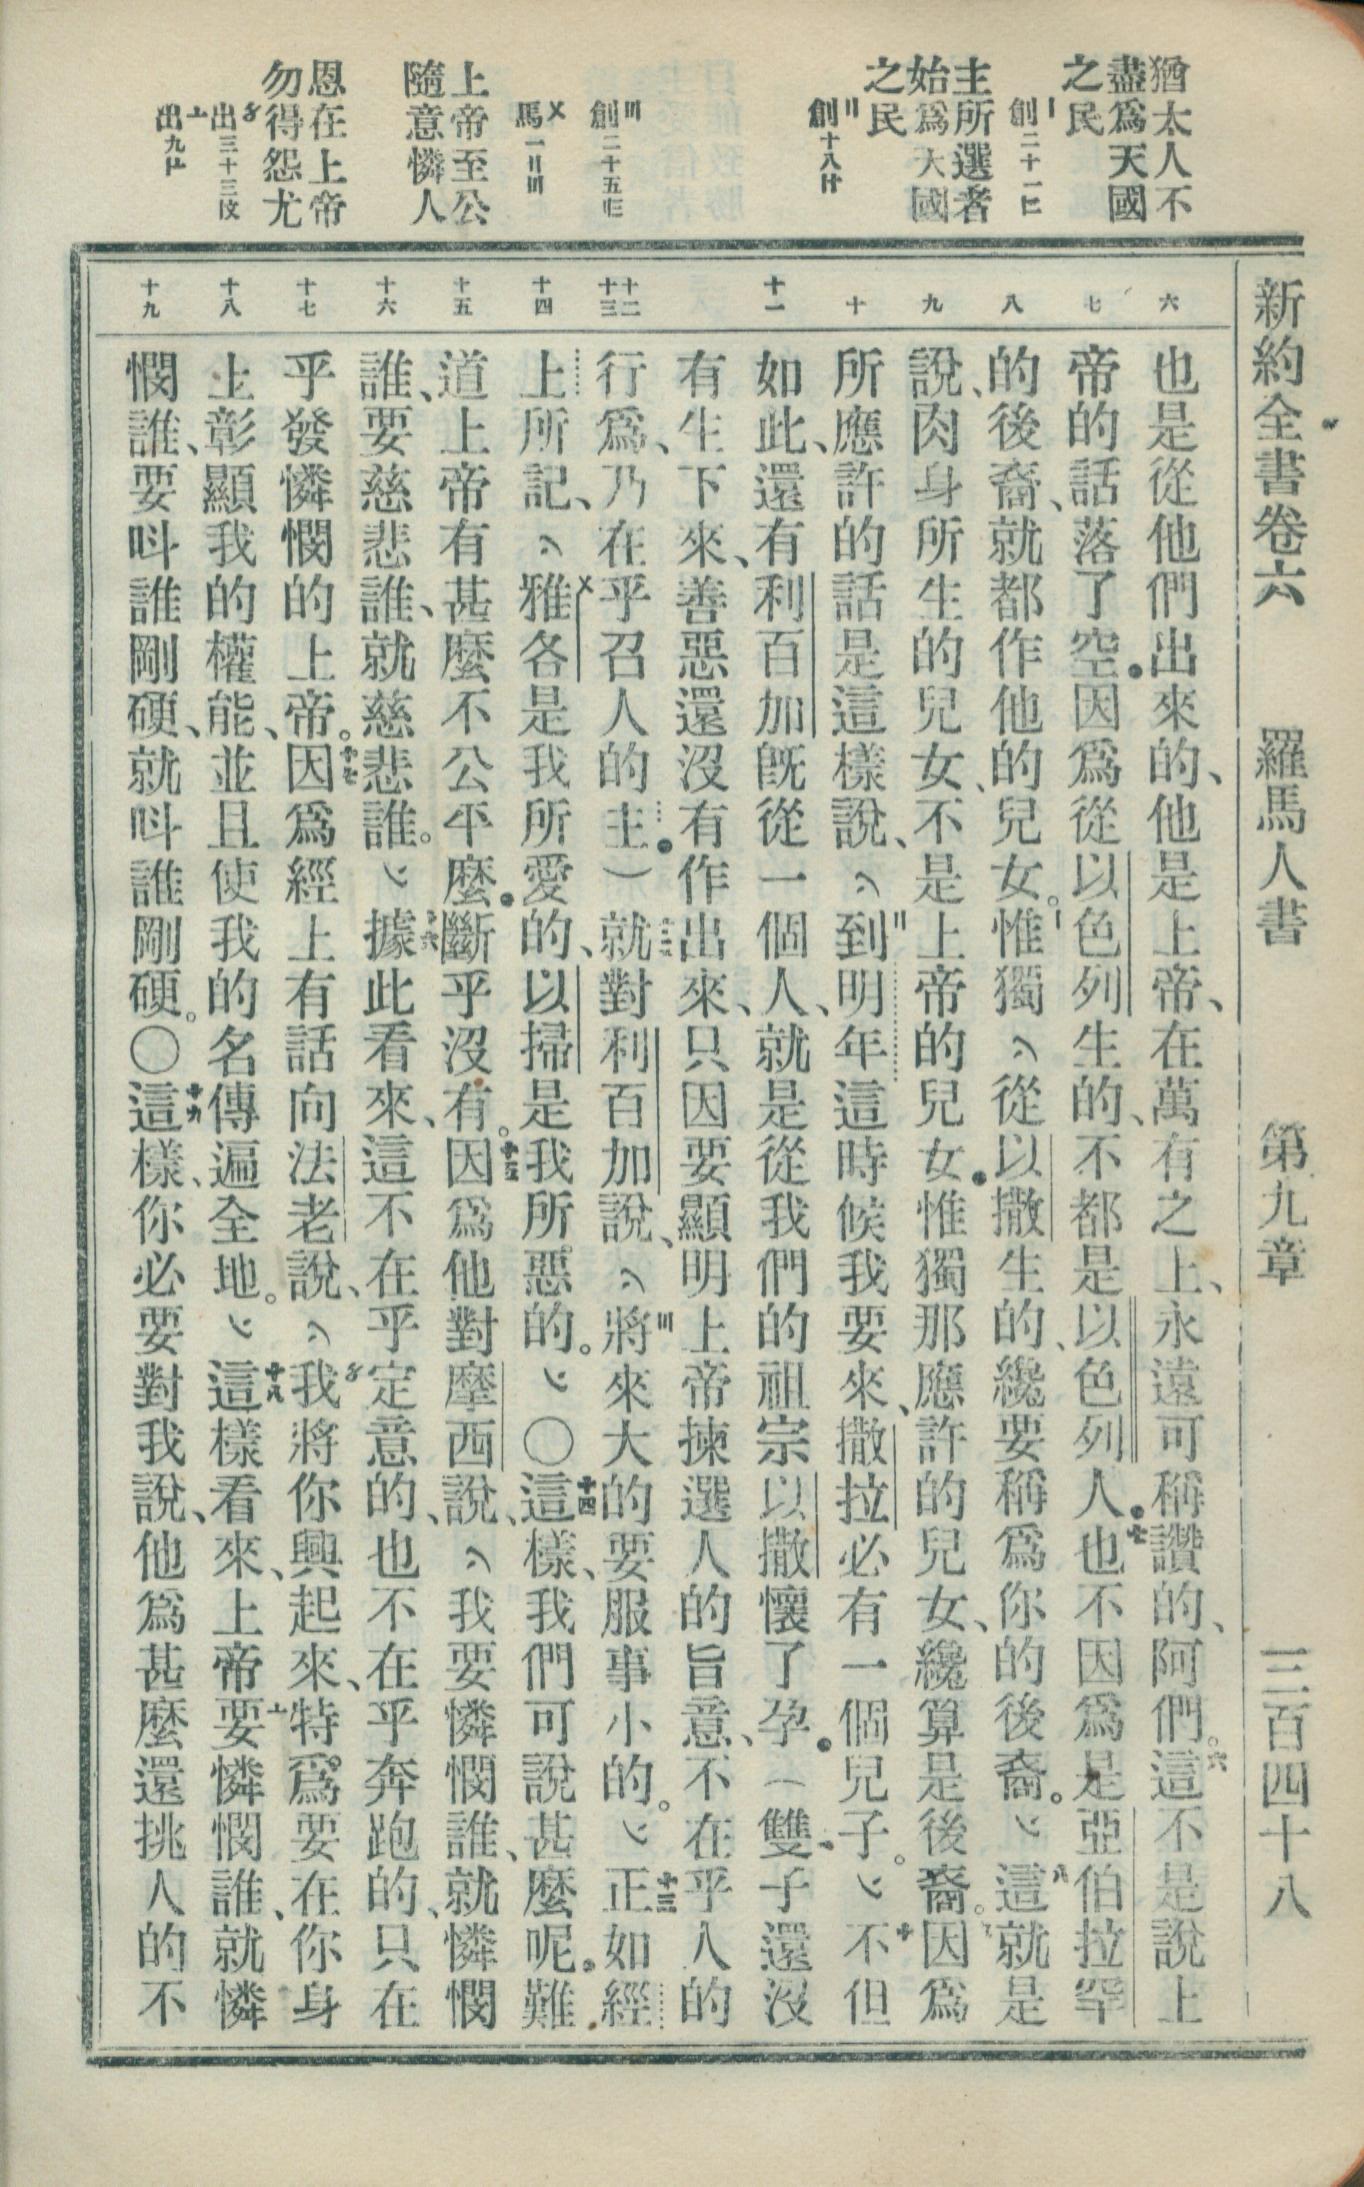 新約全書卷六　羅馬人書　第九章　三百四十八
猶太人不
盡爲天國
之民
創二十一
主所選者
始爲大國
之民
創十八
創二十五
馬一
上帝至公
隨意憐人
恩在上帝
勿得怨尤
出三十三
出九
六
七
八
九
十
十一
十二
十三
十四
十五
十六
十七
十八
十九
也是從他們出來的、他是上帝、在萬有之上、永遠可稱讚的、阿們。六這不是說上
帝的話落了空.因爲從以色列生的、不都是以色列人.七也不因爲是亞伯拉罕
的後裔、就都作他的兒女。惟獨從以撒生的、纔要稱爲你的後裔。八這就是
說、肉身所生的兒女、不是上帝的兒女.惟獨那應許的兒女、纔算是後裔。九因爲
所應許的話是這樣說、到明年這時候我要來、撒拉必有一個兒子。十不但
如此、還有利百加旣從一個人、就是從我們的祖宗以撒懷了孕.（雙子還沒
有生下來、善惡還沒有作出來、只因要顯明上帝揀選人的旨意、不在乎人的
行爲、乃在乎召人的主.）十二就對利百加說、將來大的要服事小的。十三正如經
上所記、雅各是我所愛的、以掃是我所惡的。〇十四這樣、我們可說甚麼呢.難
道上帝有甚麼不公平麼.斷乎沒有。十五因爲他對摩西說、我要憐憫誰、就憐憫
誰、要慈悲誰、就慈悲誰。十六據此看來、這不在乎定意的、也不在乎奔跑的、只在
乎發憐憫的上帝。十七因爲經上有話向法老說、我將你興起來、特爲要在你身
上彰顯我的權能、並且使我的名傳遍全地。十八這樣看來、上帝要憐憫誰、就憐
憫誰、要呌誰剛硬、就呌誰剛硬。〇十九這樣、你必要對我說、他爲甚麼還挑人的不